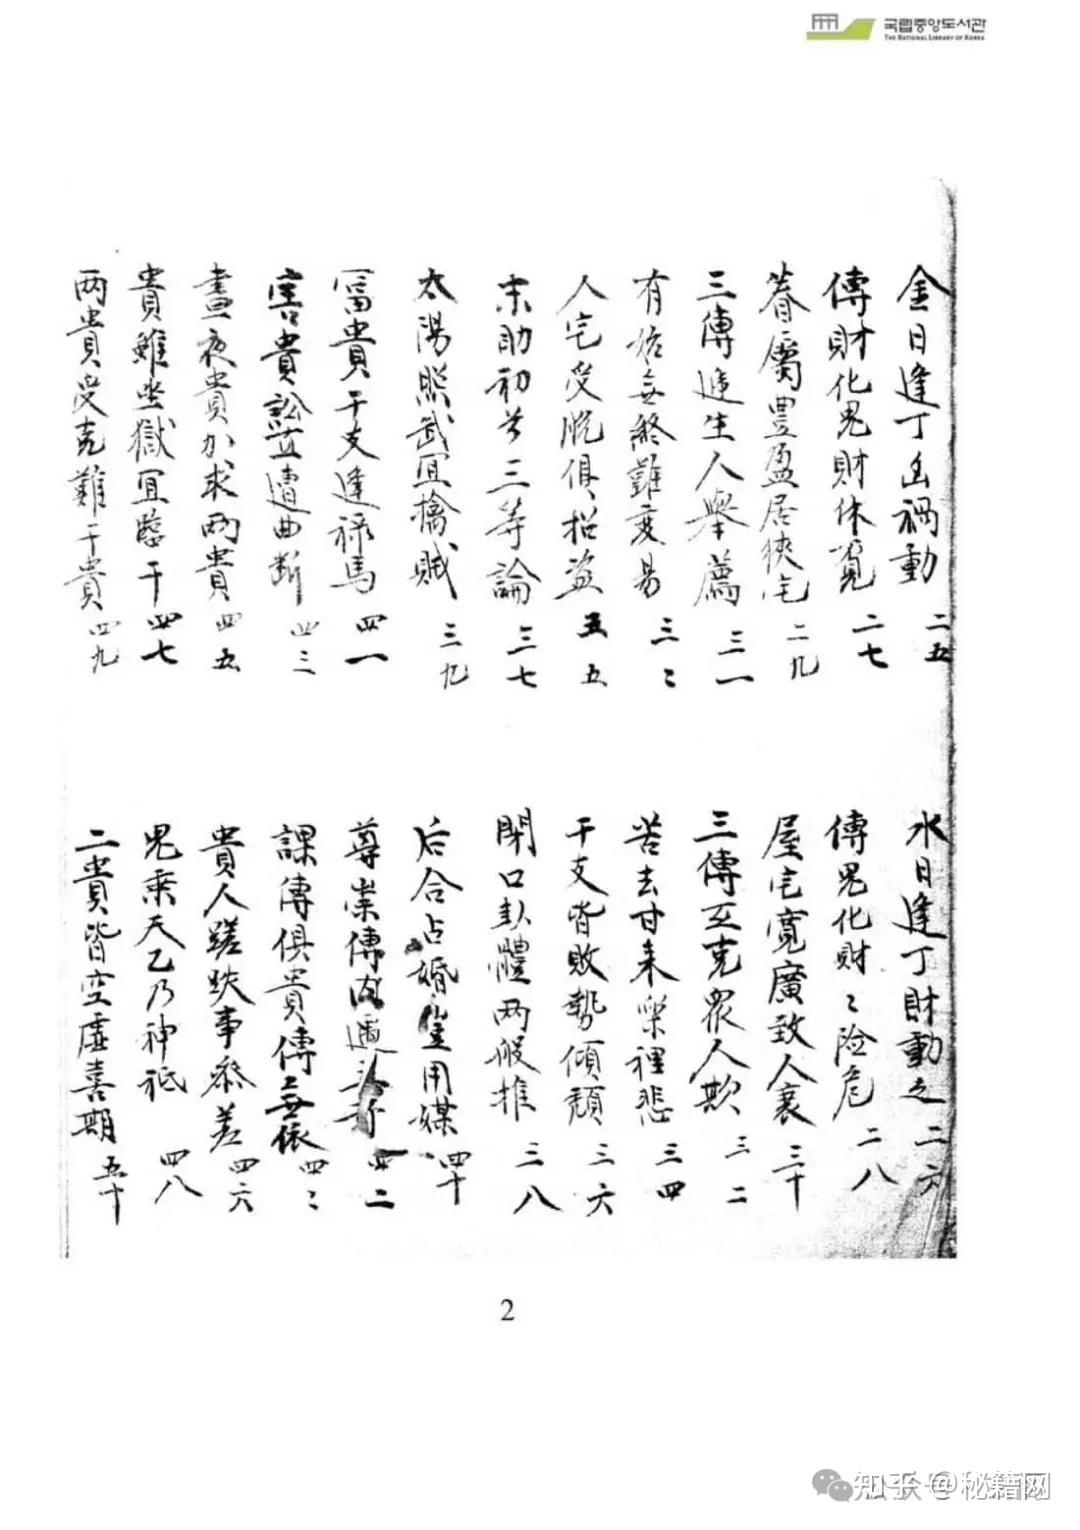 국립중앙도서관
THE NATIONAL LIBRARY OF KOREA
金日逢丁凶禍動 二五
水日逢丁財動之 二六
傳財化鬼財休覓 二七
傳鬼化財〻险危 二八
眷屬豊盈居狹宅 二九
屋宅寬廣致人衰 三十
三傳逓生人舉薦 三一
三傳互克眾人欺 三二
有始無終難变易 三〻
苦去甘来樂裡悲 三四
人宅受脱俱招盜 五五
干支皆敗勢傾頹 三六
末助初兮三等論 三七
閉口卦體兩般推 三八
太陽照武冝擒贼 三九
后合占婚豈用媒 四十
冨貴干支逢祿馬 四一
尊崇傳内遁 四二
害貴訟直遭曲断 四三
課傳俱貴傳無依 四〻
晝夜貴加求两貴 四五
貴人蹉跌事叅差 四六
貴雖坐獄冝臨干 四七
鬼乘天乙乃神祇 四八
两貴受克難干貴 四九
二貴皆空虚喜期 五十
2
知乎 @秘籍网